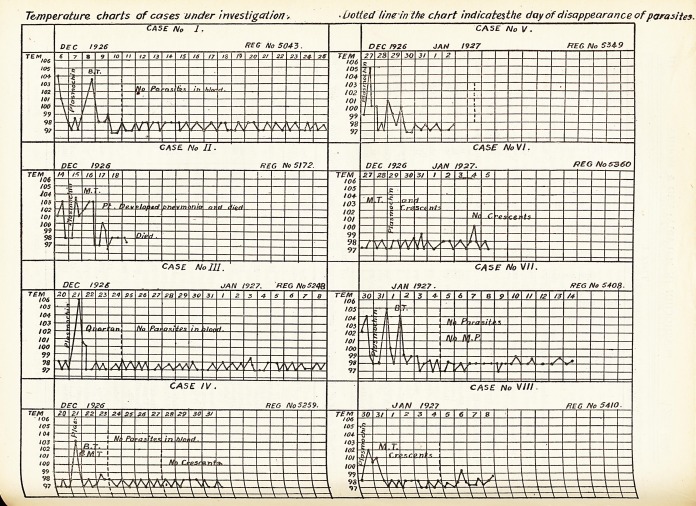 Temperature charts of cases under investigation.
Dotted line in the chart indicates the day of disappearance of parasites.
CASE No I.
DEC 1926 REG No 5043.
TEM 6 7 8 9 10 11 12 13 14 15 16 17 18 19 20 21 22 23 24 25 26
106
105
104
103
102
101
100
99
98
97
Plasmochin
B.T.
No Parasites in blood.
CASE No II.
DEC 1926 REG No 5172.
TEM 14 15 16 17 18
106
105
104
103
102
101
100
99
98
97
Plasmochin
M.T.
Pt. Developed pneumonia and died
Died.
CASE No III.
DEC 1926 JAN 1927. REG No 5248
TEM 20 21 22 23 24 25 26 27 28 29 30 31 1 2 3 4 5 6 7 8
106
105
104
103
102
101
100
99
98
97
Plasmochin
Quartan
No Parasites in blood.
CASE IV.
DEC 1926 REG No 5259.
TEM 20 21 22 23 24 25 26 27 28 29 30 31
106
105
104
103
102
101
100
99
98
97
B.T.
& M.T
No Parasites in blood.
No Crescents
CASE No V.
DEC 1926 JAN 1927 REG No 5349
TEM 27 28 29 30 31 1 2
106
105
104
103
102
101
100
99
98
97
Plasmochin
CASE No VI.
DEC 1926 JAN 1927. REG No 5360
TEM 27 28 29 30 31 1 2 3 4 5
106
105
104
103
102
101
100
99
98
97
M.T. and
Crescents
Plasmochin
No Crescents
CASE No VII.
JAN 1927. REG No 5408.
TEM 30 31 1 2 3 4 5 6 7 8 9 10 11 12 13 14
106
105
104
103
102
101
100
99
98
97
Plasmochin
B.T.
No Parasites
No M.P.
CASE No VIII.
JAN 1927 REG No 5410.
TEM 30 31 1 2 3 4 5 6 7 8
106
105
104
103
102
101
100
99
98
97
Plasmochin
M.T.
Crescents